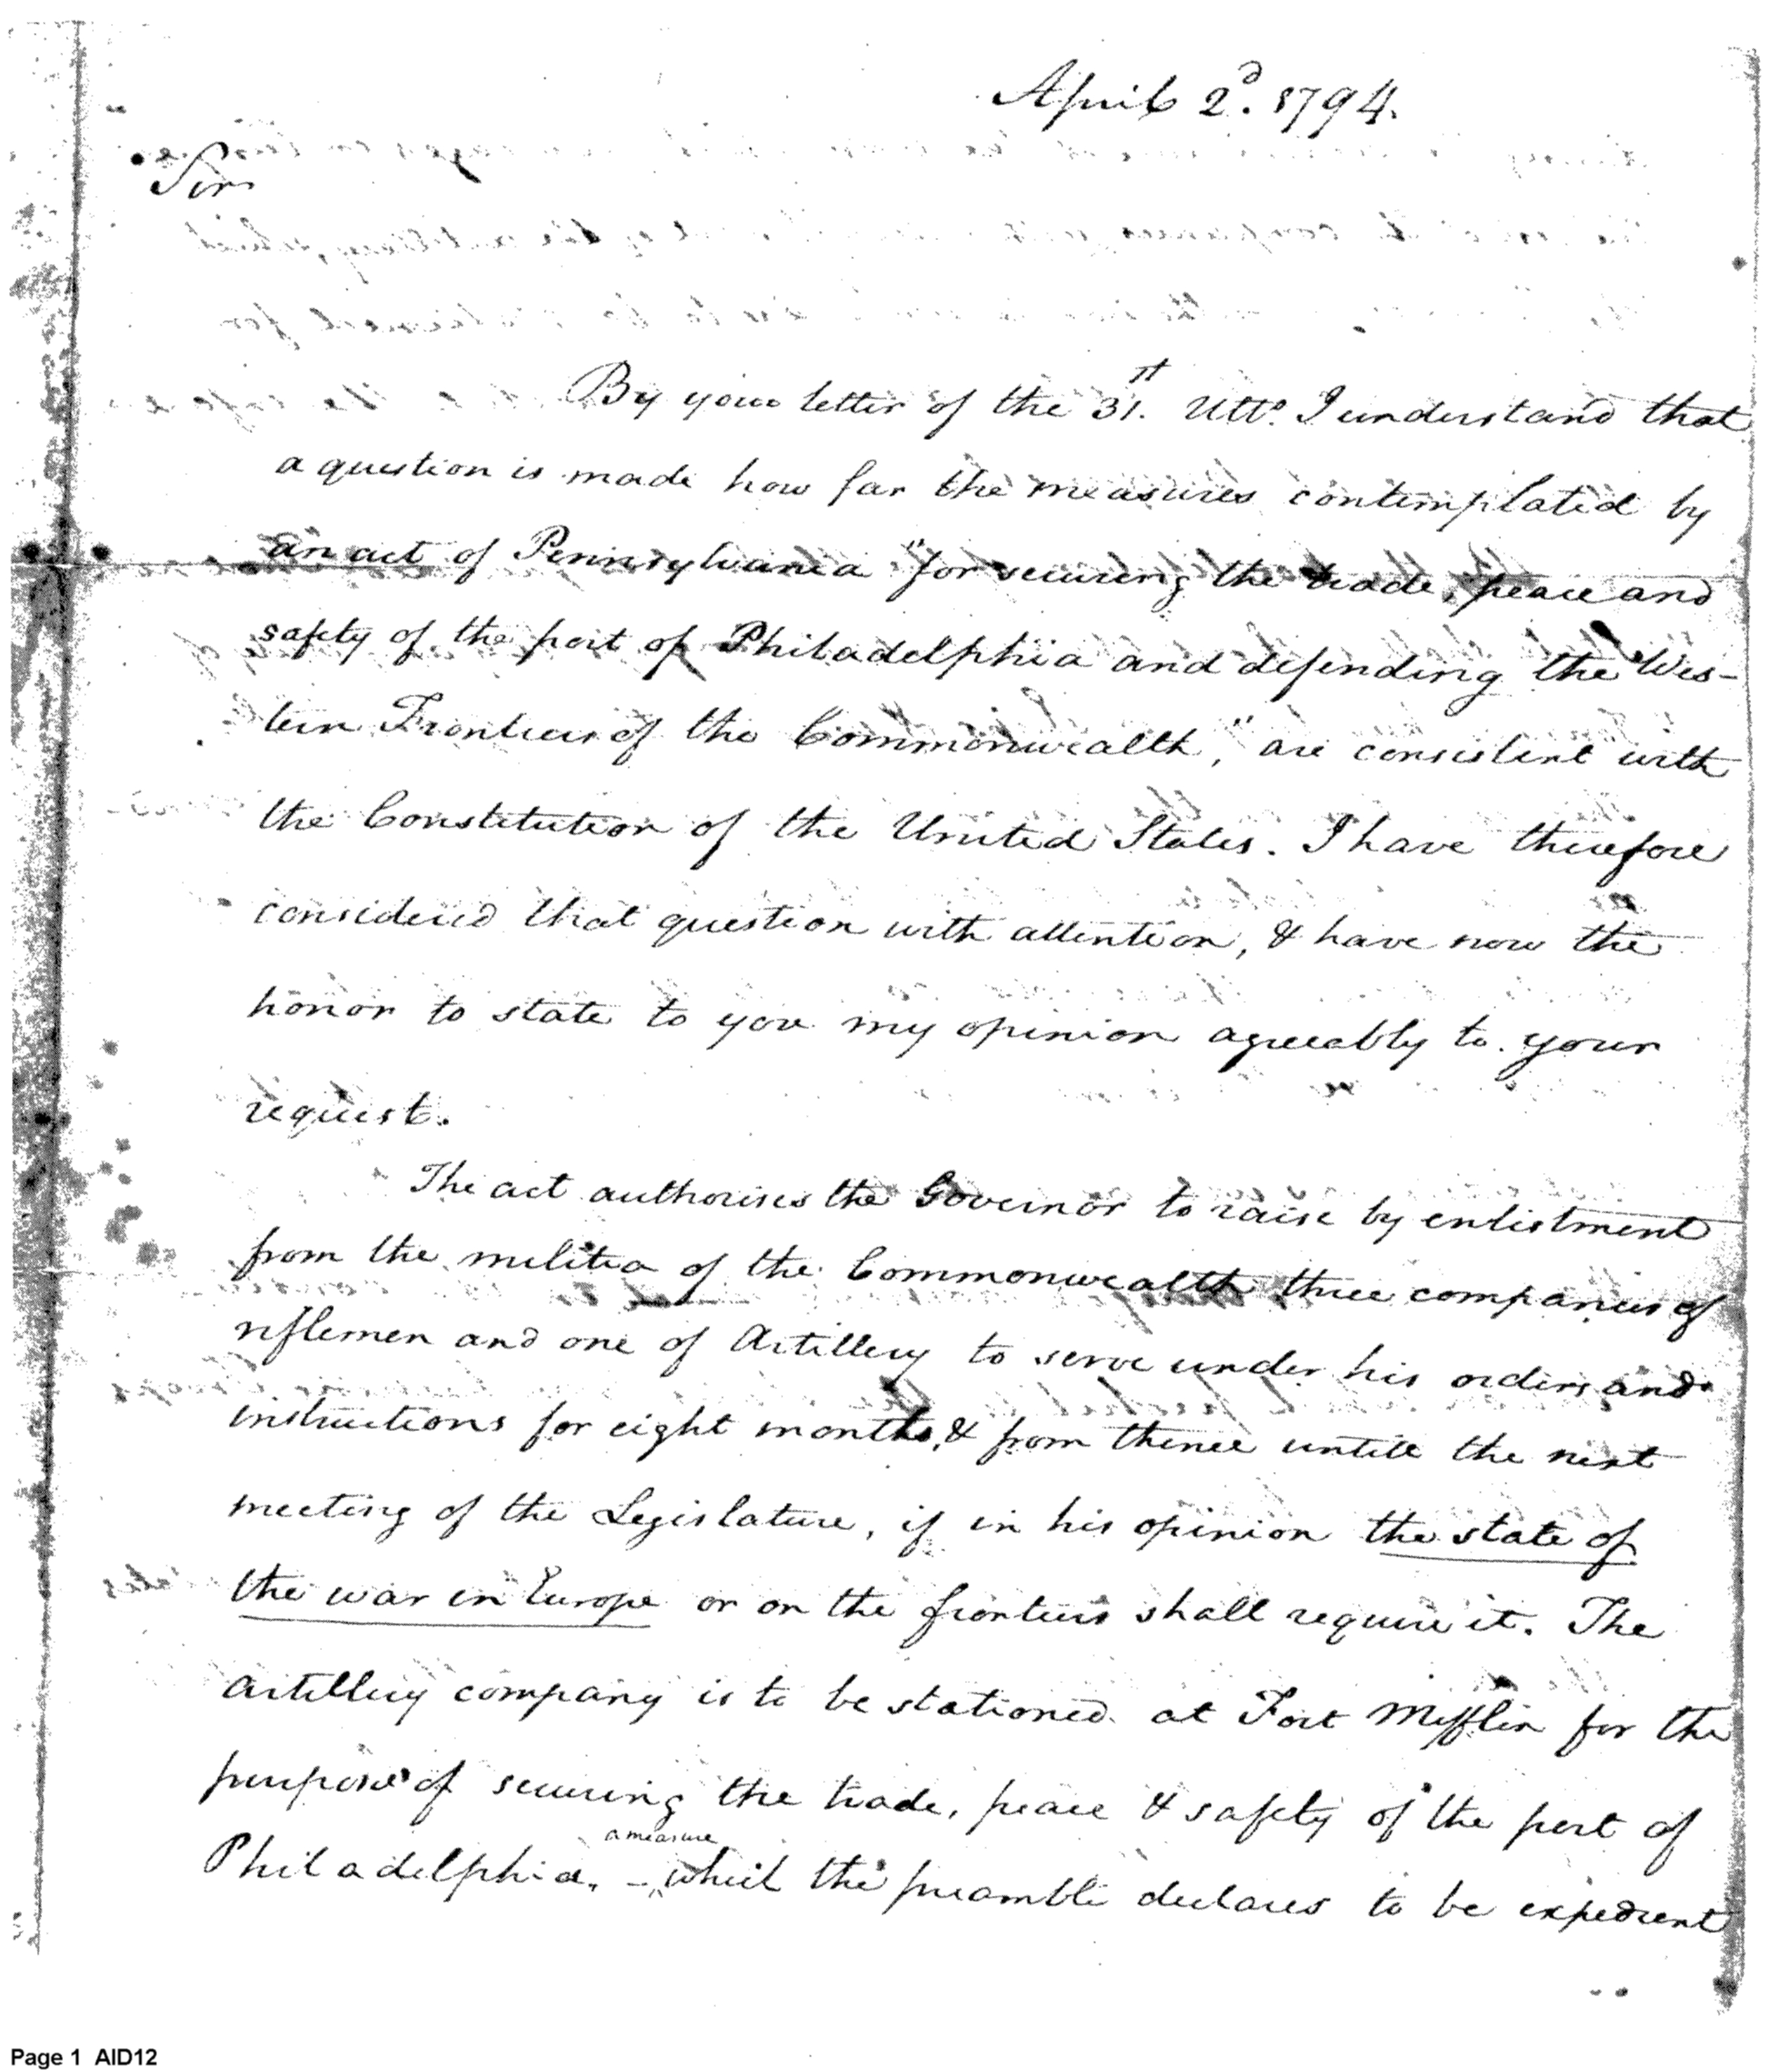 April 2d. 1794.
Sir
By your letter of the 31.st Ulto. I understand that
a question is made how far the measures contemplated by
an act of Pennsylvania "for securing the trade, peace and
safety of the port of Philadelphia and defending the Wes-
tern Frontiers of the Commonwealth," are consistent with
the Constitution of the United States. I have therefore
considered that question with attention, & have now the
honor to state to you my opinion agreeably to your
request.
The act authorises the Governor to raise by enlistment
from the militia of the Commonwealth three companies of
riflemen and one of Artillery to serve under his orders and
instructions for eight months, & from thence untill the next
meeting of the Legislature, if in his opinion the state of
the war in Europe or on the frontiers shall require it. The
artillery company is to be stationed at Fort Mifflin for the
purpose of securing the trade, peace & safety of the port of
Philadelphia. - a measure which the preamble declares to be expedient
Page 1 AID12